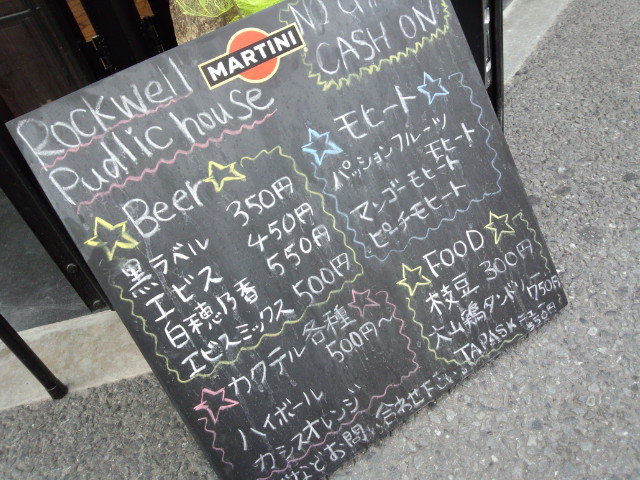 MARTINI
NO CHA
CASH ON
Rockwell
Pudlic house
Beer
黒ラベル 350円
エビス 450円
白穂乃香 550円
エビスミックス 500円
カクテル各種
500円〜
ハイボール
カシスオレンジ
などお問い合わせ下さい
モヒート
パッションフルーツ
モヒート
マンゴーモヒート
ピーチモヒート
FOOD
枝豆 300円
大山鶏タンドリ 750円
TAPAS 350円